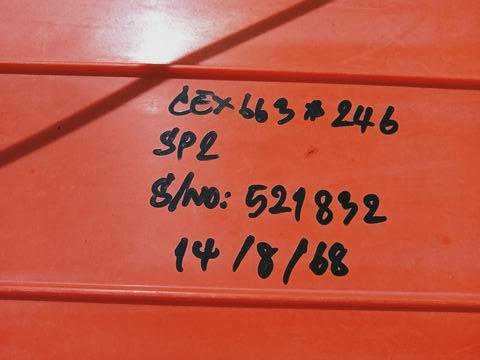 CEX663*246
SP2
S/NO: 521832
14/8/68